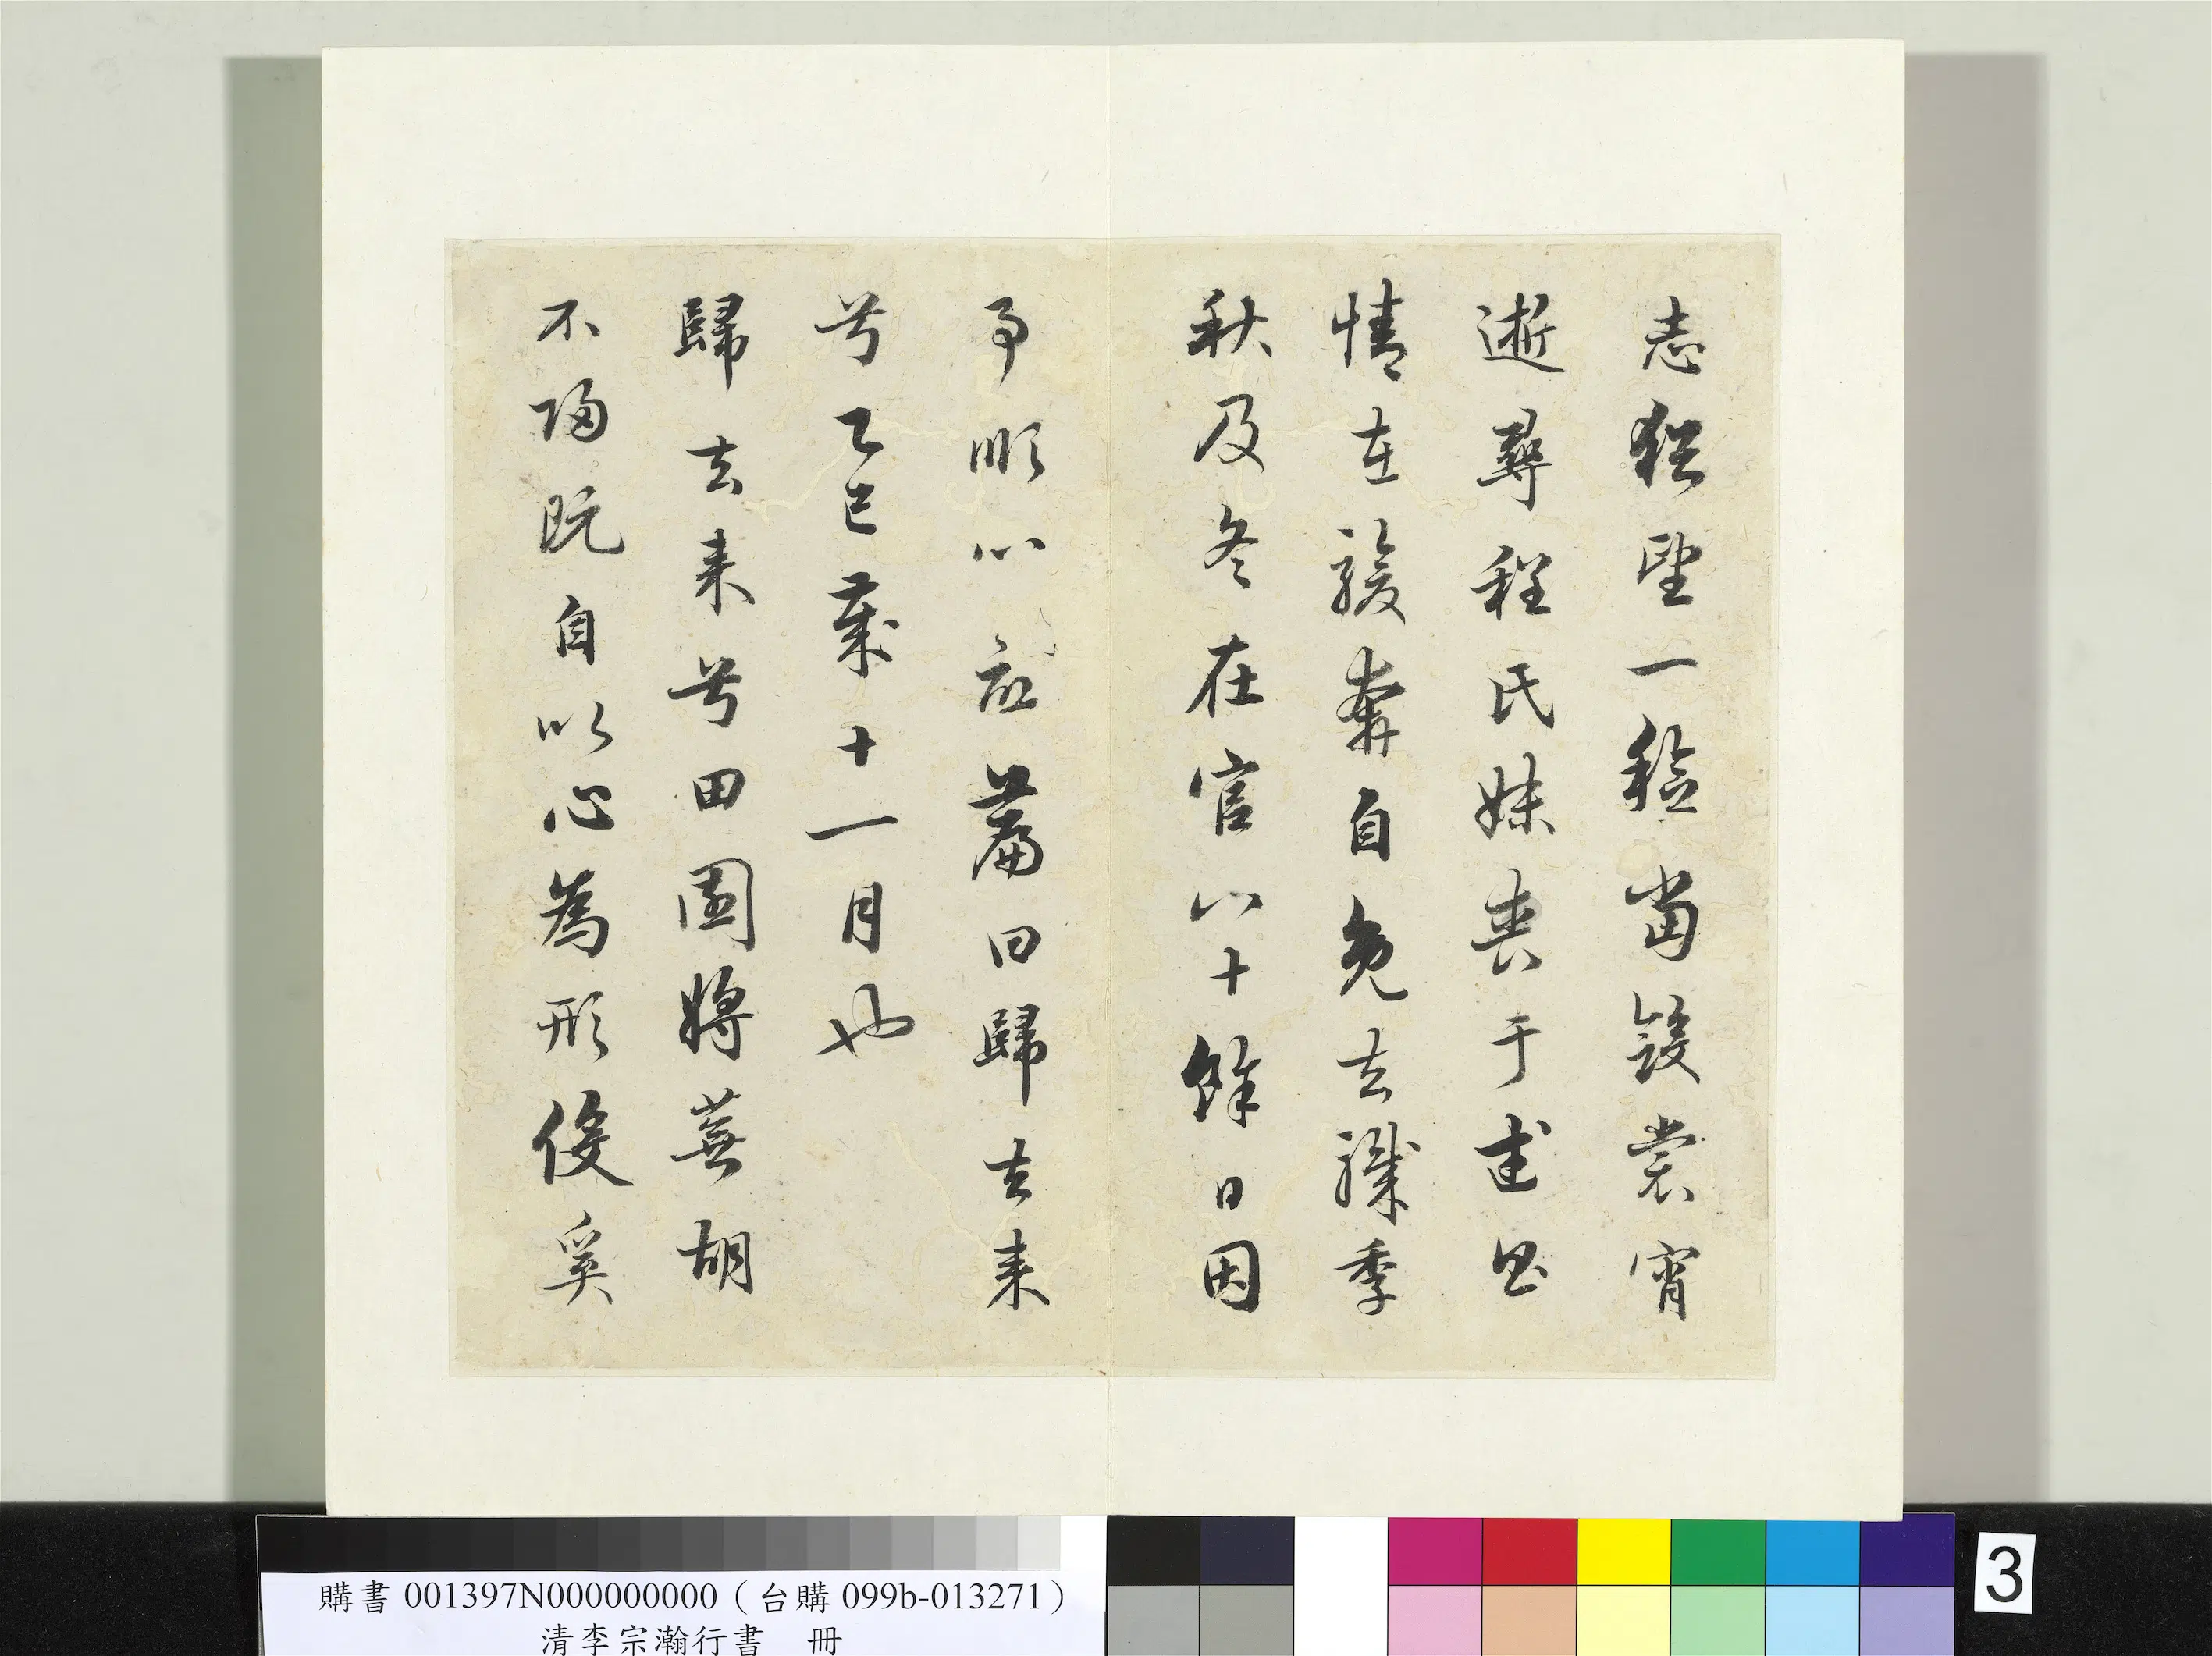 志猶望一稔當斂裳宵
逝尋程氏妹喪于武昌
情在駿奔自免去職季
秋及冬在官八十餘日因
事順心命篇曰歸去来
兮乙巳歲十一月也
歸去来兮田園將蕪胡
不歸既自以心為形役奚
購書 001397N000000000（台購 099b-013271）
清李宗瀚行書 冊
3